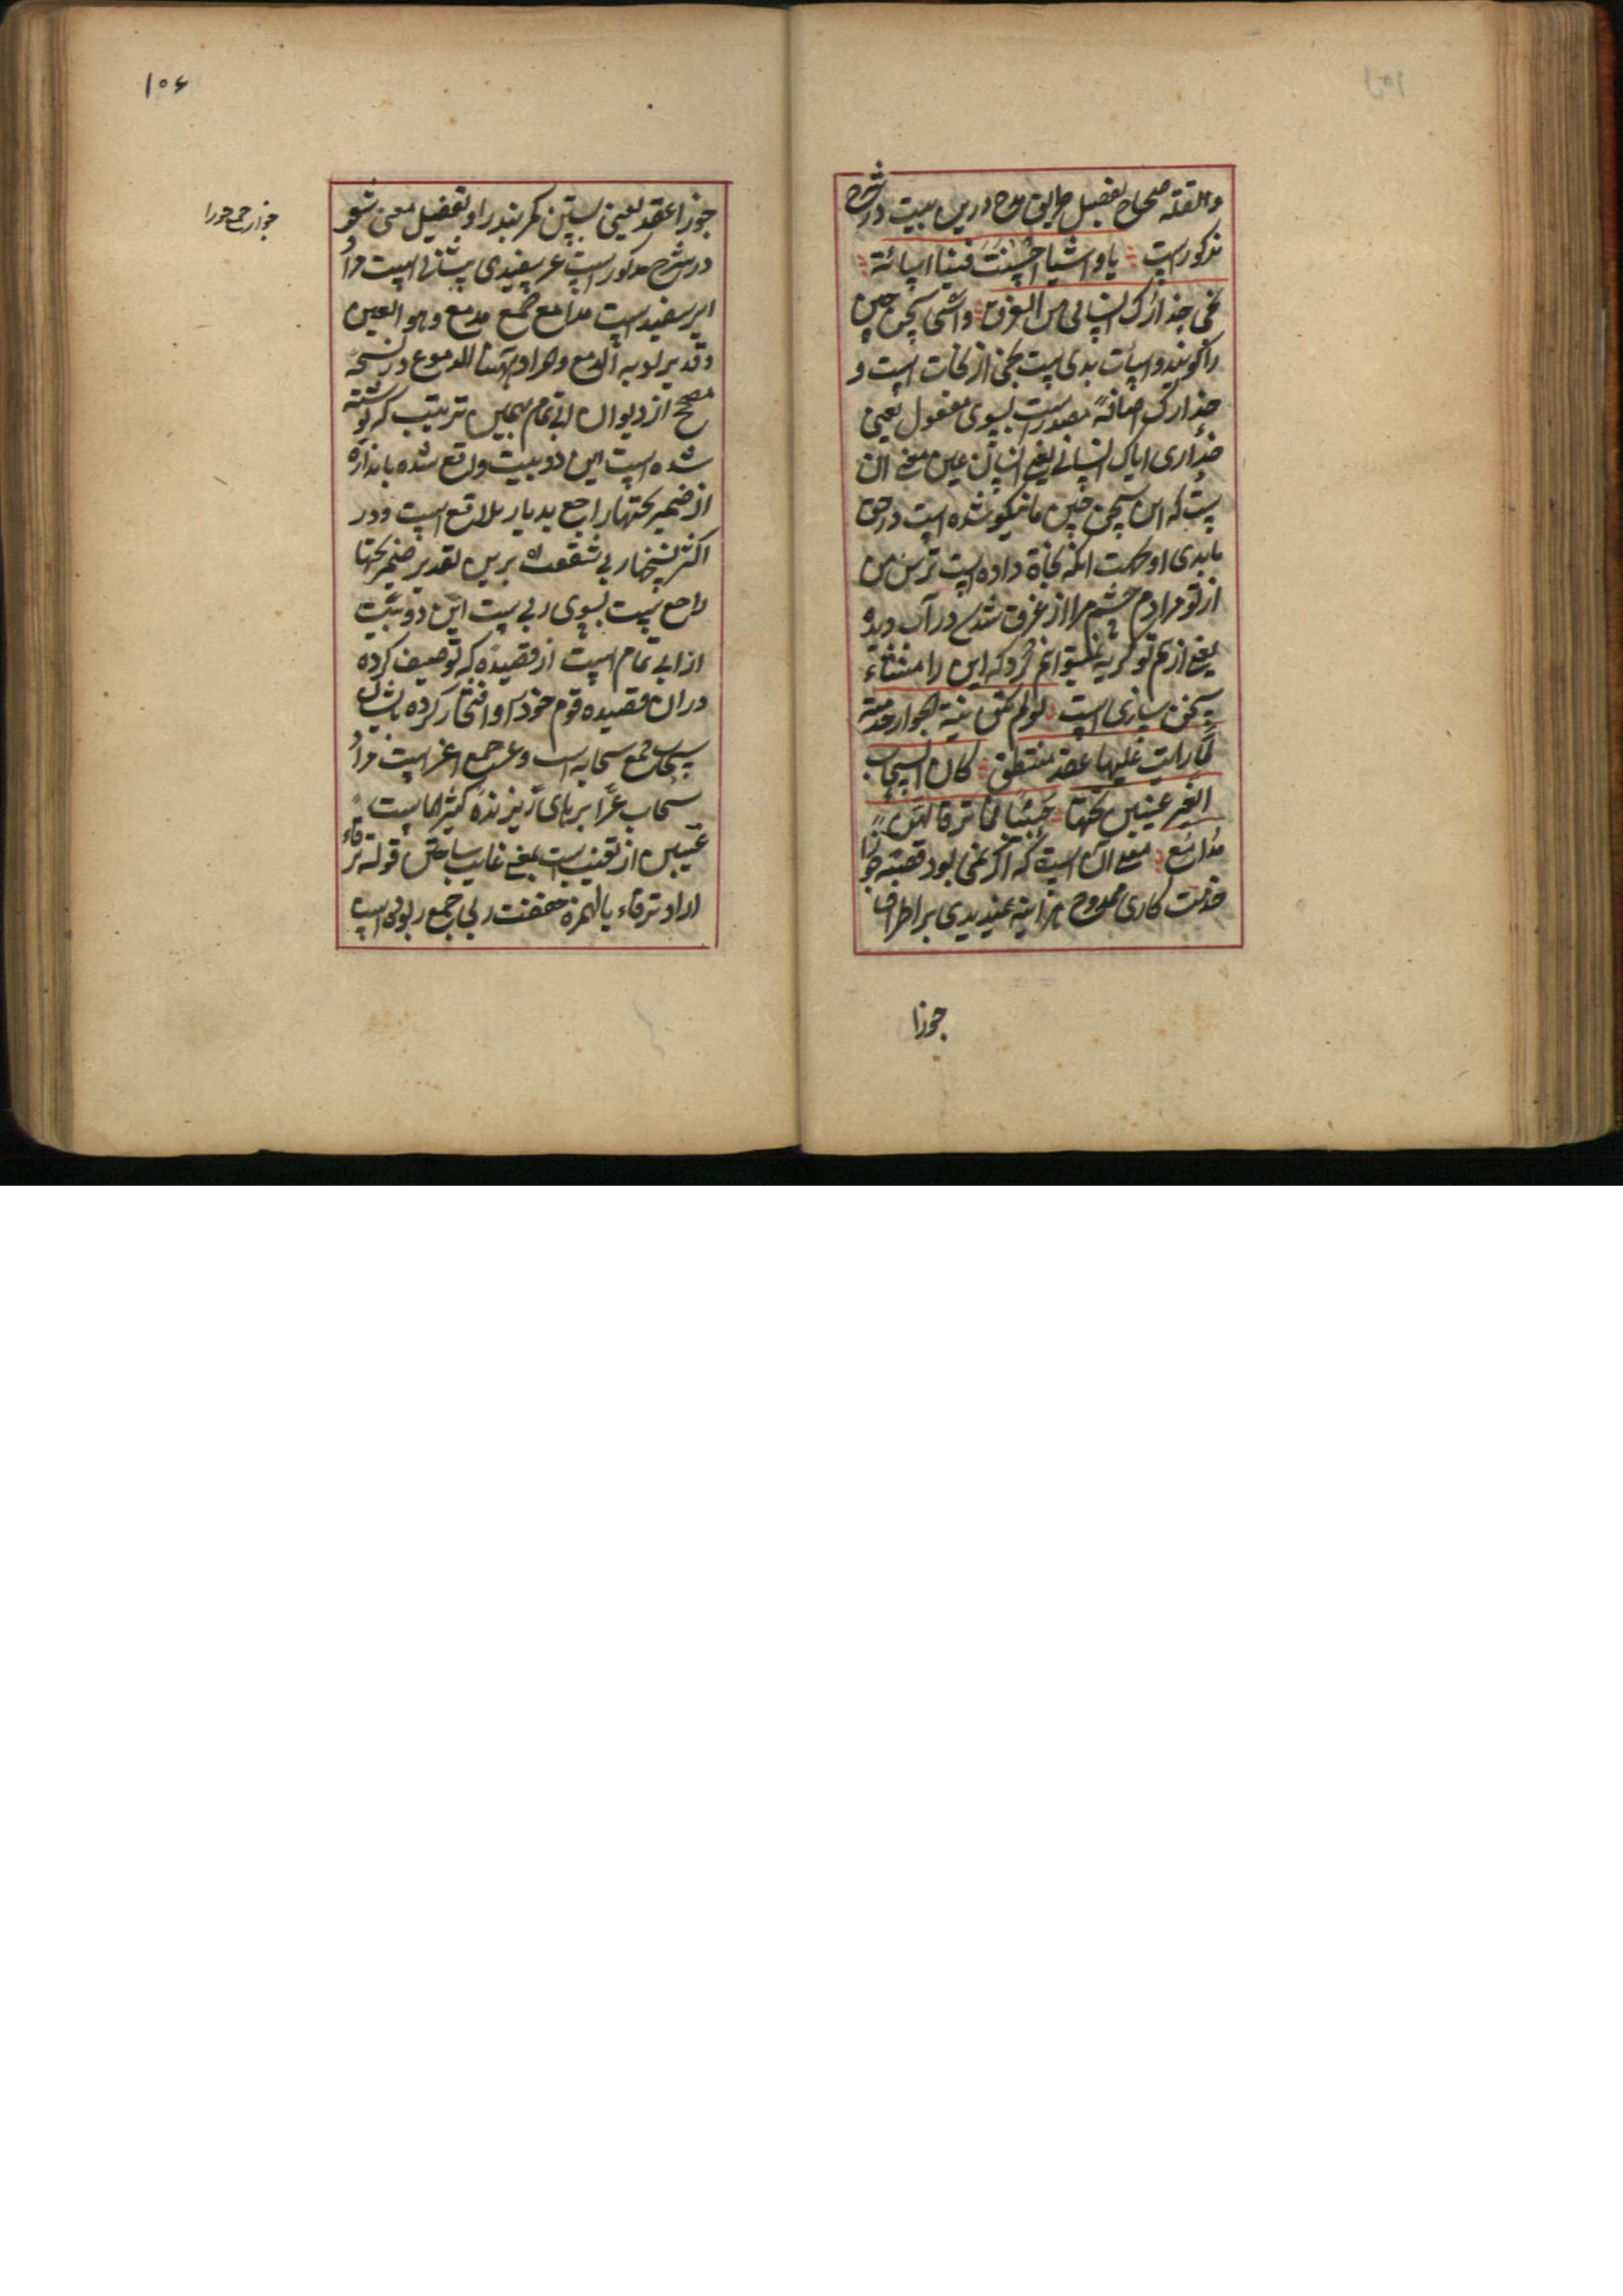 والقلة صحاح تفصیل طریق مدح درین بیت در شرح
مذکورست یا واشیا حسنت فینا اساءته
نجی حذارک انسانی من الغرق واشی سخن چین
را گویند واساءت بدی ست نجی از نجات است و
حذارک اضافه مصدرست بسوی مفعول یعنی
حذاری ایاک انسانی یعنی انسان عین معنی آن
ست که ای سخن چین مانیکو شده است در حق
ما بدی او جهت آنکه نجاة داده است ترس من
از تو مردم چشم مرا از غرق شدن در آب دیده
یعنی از بیم تو گریه نمیتوانم کرد که این را منشاء
سخن سازی است لو لم تکن نیة الجوزاء خدمته
لما رایت علیها عقد منتطق کان السحاب
الغر غیبن تحتها حبیبا فما ترقا لهن
مدامع معنی آن است که اگر نمی بود قصد جوزا
خدمت کاری ممدوح هر آینه نمیدیدی بر اطراف
جوزا
۱۰۶
جوزا عقد یعنی بستن کمربند را و تفصیل معنی شعر
در شرح مذکور است غر سفیدی پیشانی است مراد
ابر سفید است مدامع جمع مدمع وهو العین
وقد یراد به الدمع والمراد ههنا الدموع در نسخه
مصحح از دیوان ابی تمام بهمین ترتیب که نوشته
شده است این دو بیت واقع شده باندازه
از ضمیر تحتها راجع بدیار بلاقع است ودر
اکثر نسخها ربی شفعت براین تقدیر ضمیر تحتها
راجع نیست بسوی ربی بیت این دو بیت
از ابی تمام است از قصیده که توصیف کرده
دران قصیده قوم خود را و افتخار کرده بایشان
سحاب جمع سحابه است وغر جمع اغر است مراد
سحاب غر ابرهای ریزنده کثیر الماست
غیبن از تغییب است بمعنی غایب ساختن قوله ترقاء
اراد ترقاء بالهمزة فخففت ربی جمع ربوه است